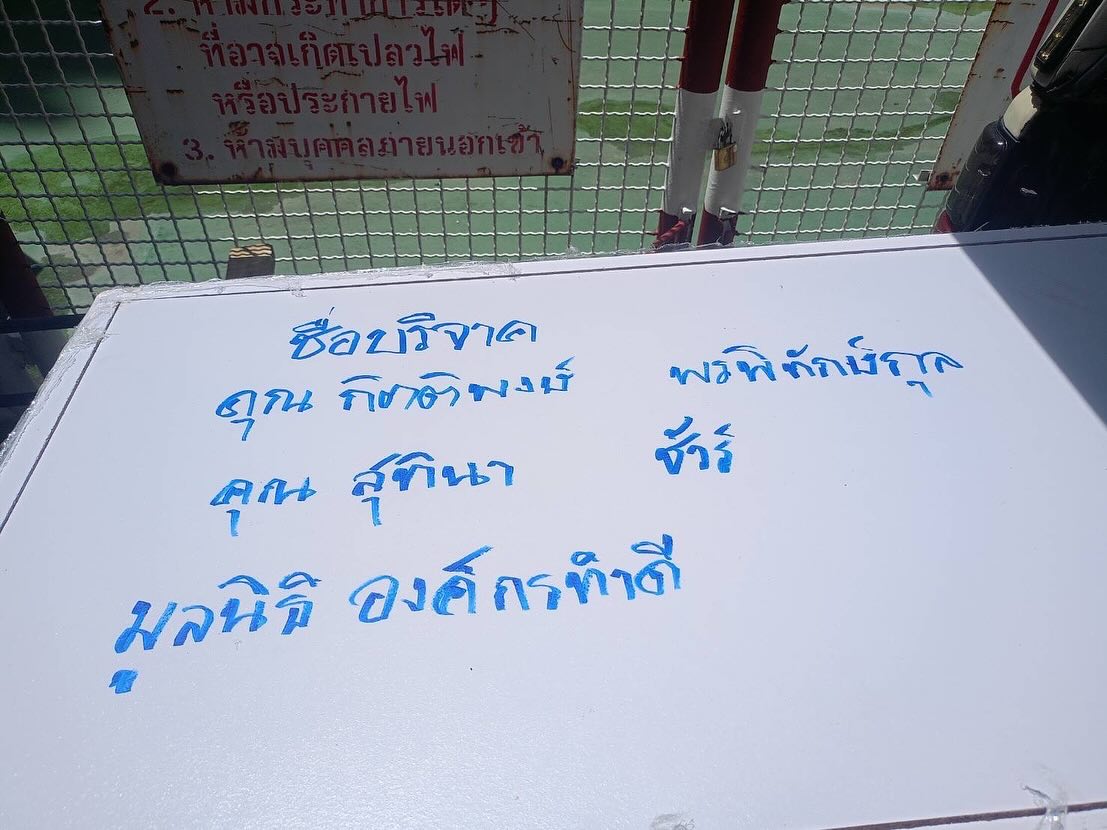 2. ห้ามกระทำการใดๆ
ที่อาจเกิดเปลวไฟ
หรือประกายไฟ
3. ห้ามบุคคลภายนอกเข้า
ชื่อบริจาค
คุณ กิชาติพงษ์ พรพิทักษ์กุล
คุณ สุทินา ชัวร์
มูลนิธิ องค์กรทำดี